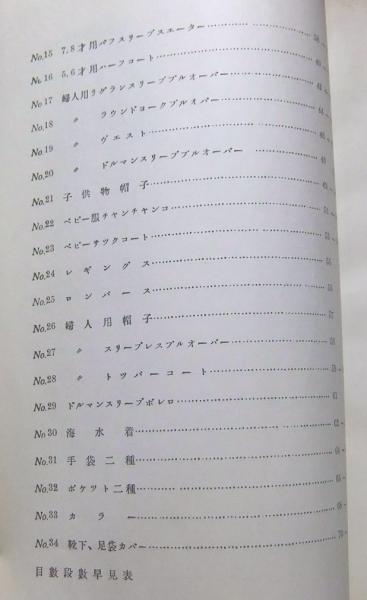 No.15 7,8才用パフスリーブスエーター
No.16 5,6才用ハーフコート
No.17 婦人用リグランスリーブプルオーバー
No.18 〃 ラウンドヨークプルオバー
No.19 〃 ヴエスト
No.20 〃 ドルマンスリーブプルオーバー
No.21 子供物帽子
No.22 ベビー服チャンチャンコ
No.23 ベビーサツクコート
No.24 レギングス 55
No.25 ロンパース 56
No.26 婦人用帽子 57
No.27 〃 スリーブレスプルオーバー
No.28 〃 トツパーコート
No.29 ドルマンスリーブボレロ 61
No.30 海水着 62
No.31 手袋二種
No.32 ポケツト二種
No.33 カラー
No.34 靴下、足袋カバー 70
目數段數早見表